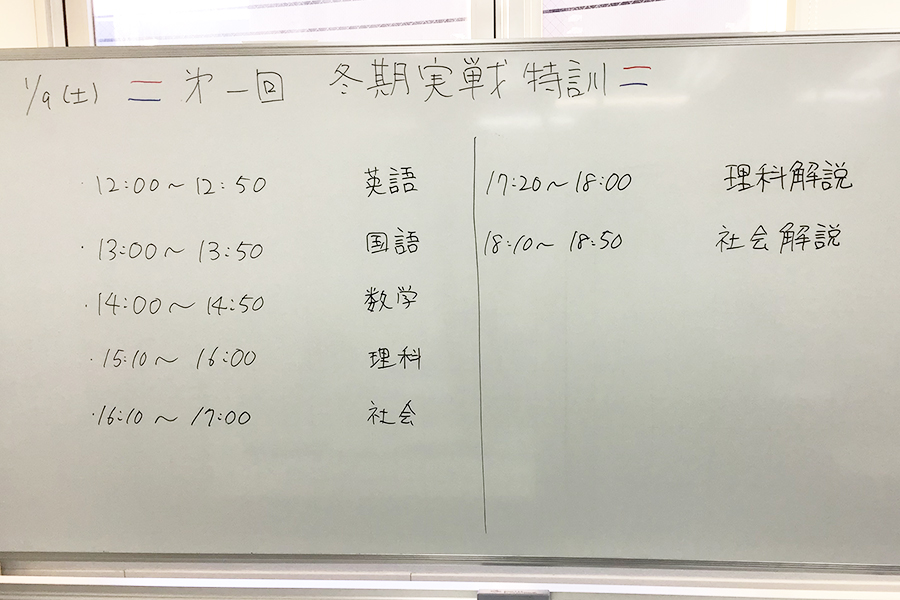 1/9(土) = 第一回 冬期実戦特訓 =
・12:00～12:50 英語
・13:00～13:50 国語
・14:00～14:50 数学
・15:10～16:00 理科
・16:10～17:00 社会
17:20～18:00 理科解説
18:10～18:50 社会解説